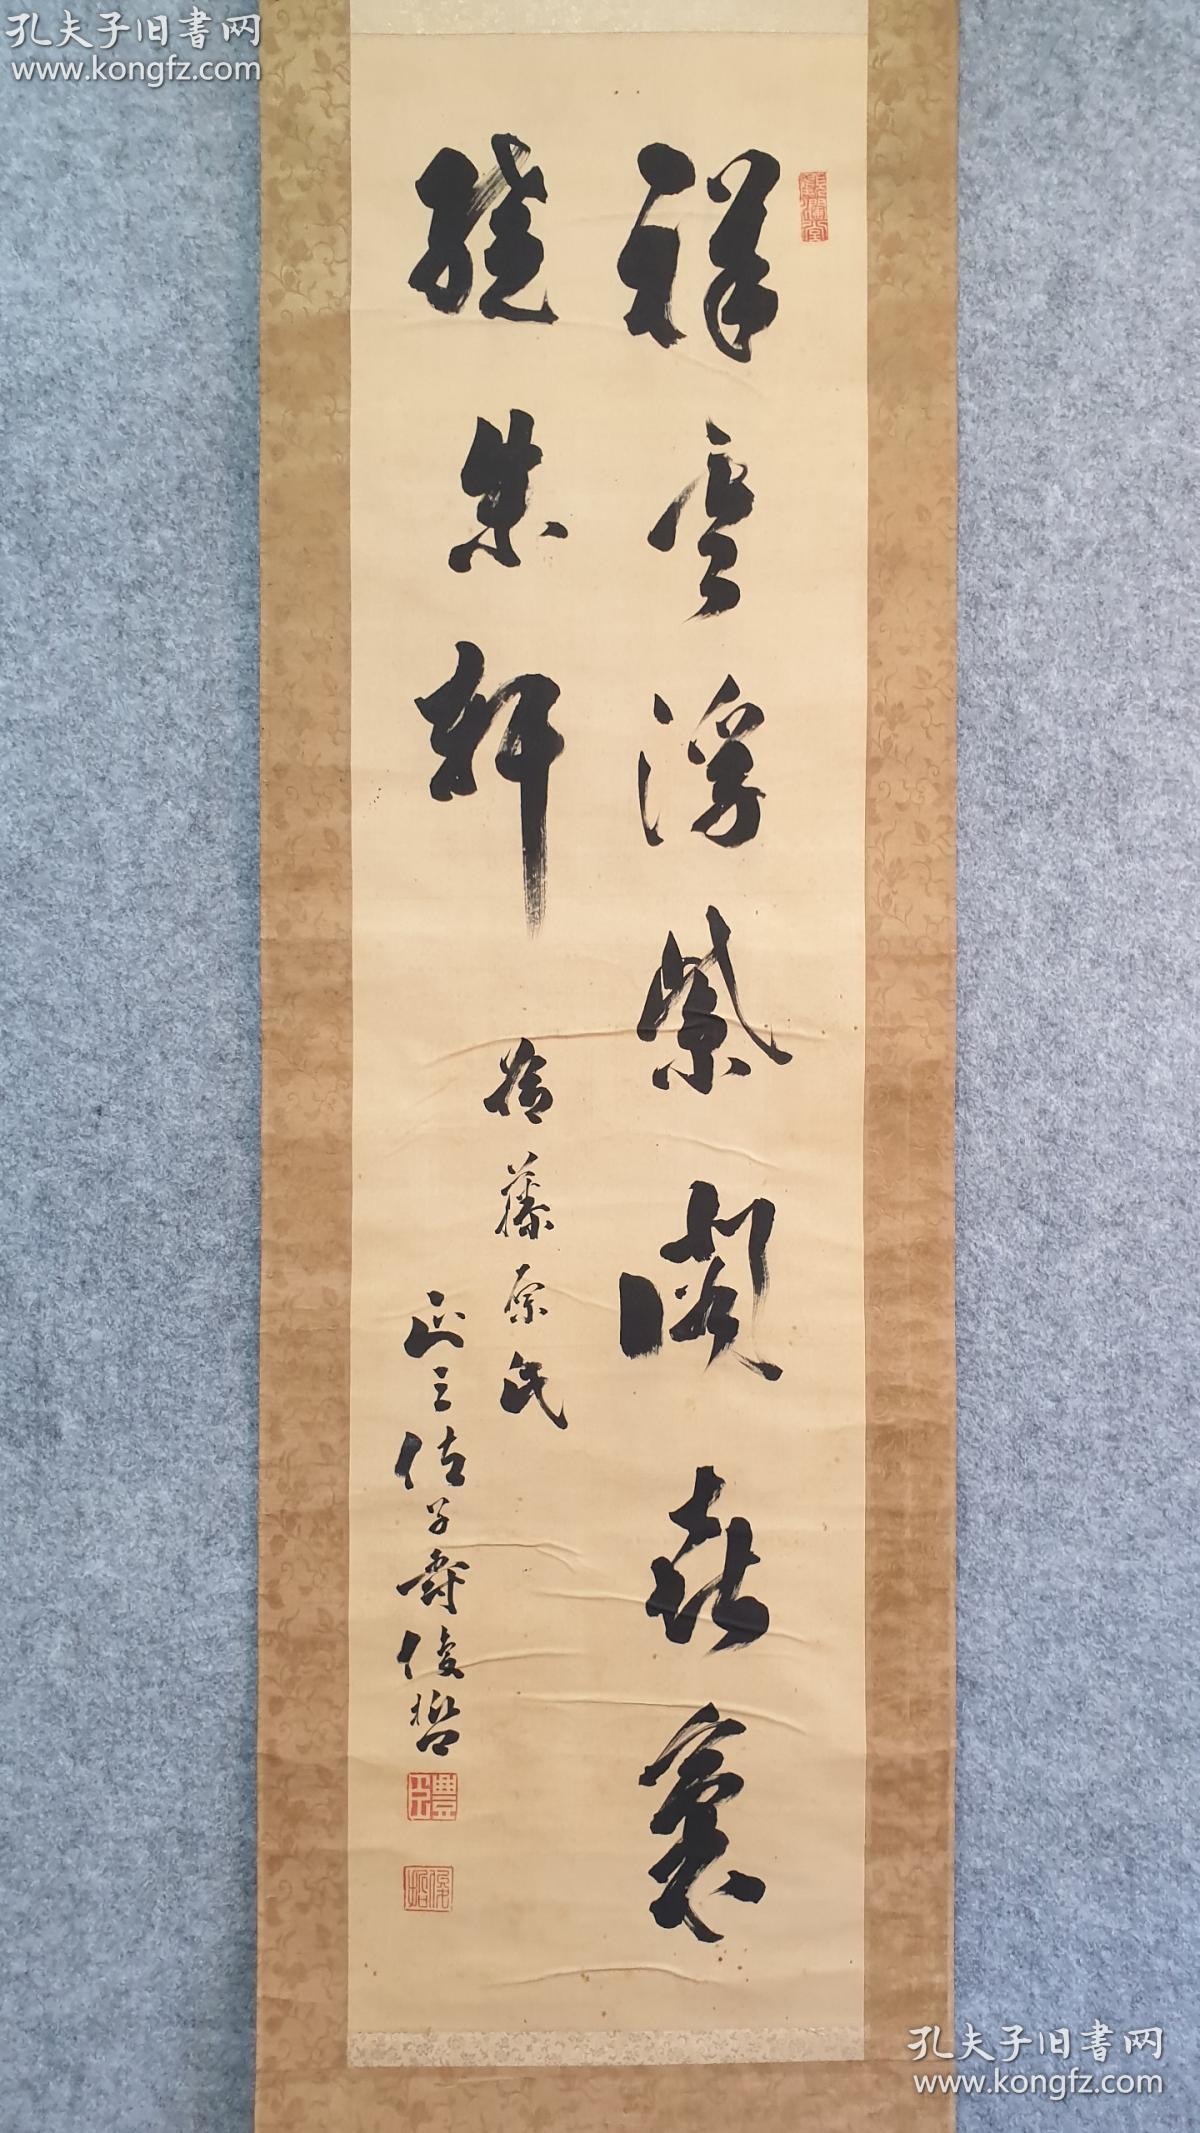 孔夫子旧書网
www.kongfz.com
祥雲浮紫閣喜氣
繞朱軒
為藤原氏
正三位子爵俊哲
豐
俊哲
孔夫子旧書网
www.kongfz.com